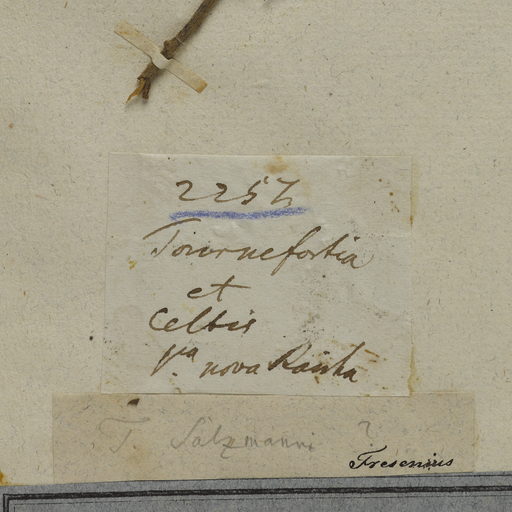 2257
Tournefortia
et
Celtis
Va nova Rainha
T. Salzmanni ?
Fresenius